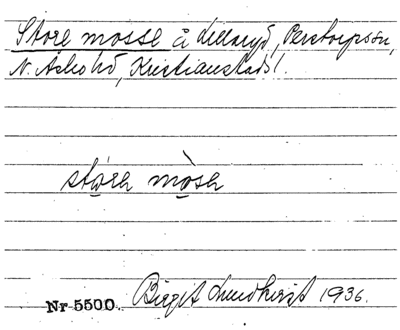 Store mosse å Lillaryd, Perstorpssn,
N. Åsbo hd, Kristianstads l.
störe mòse
Nr 5500. Birgit Lundkvist 1936.